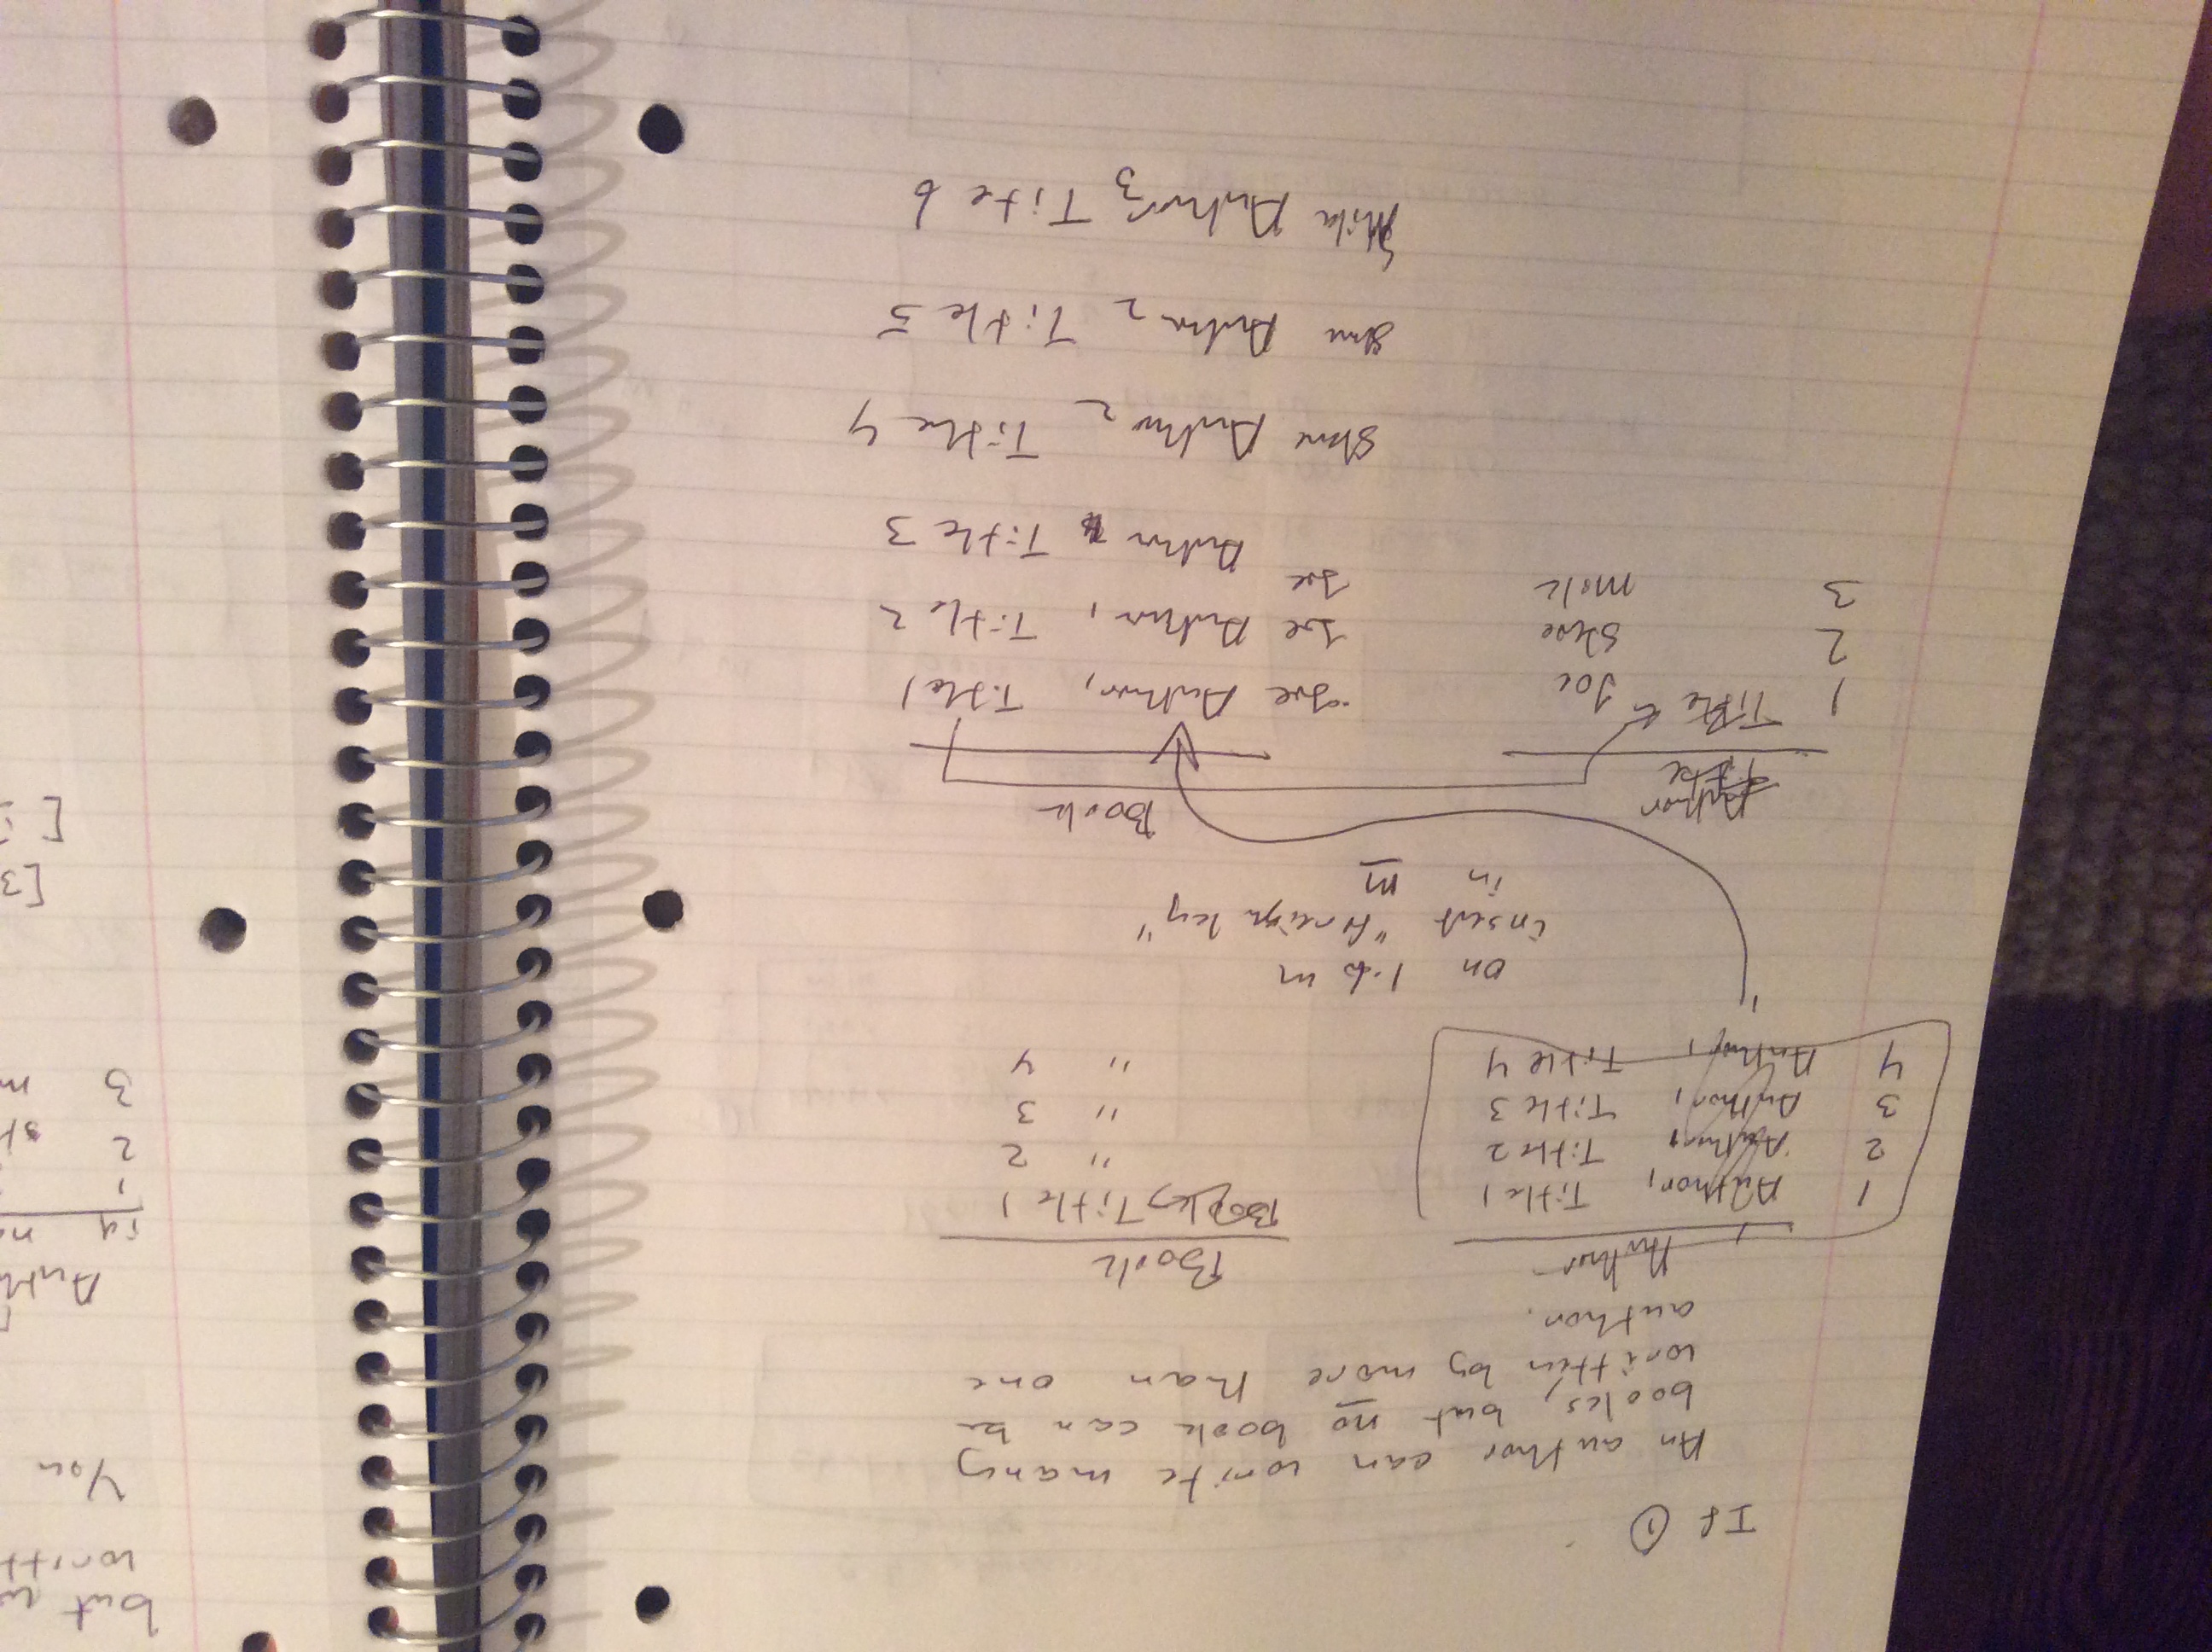 If ①
An author can write many
books, but no book can be
written by more than one
author.
Author
1 Author, Title 1
2 Author, Title 2
3 Author, Title 3
4 Author, Title 4
Book
Book, Title 1
" 2
" 3
" 4
on 1 to m
insert "foreign key"
in m
Author
Title
1 Title Joe
2 Steve
3 
Book
Joe Author, Title 1
Joe Author, Title 2
Joe
Author Title 3
Steve Author 2 Title 4
Steve Author 2 Title 5
Mike Author 3 Tite 6
but
You
id
1
2
3
[3
[